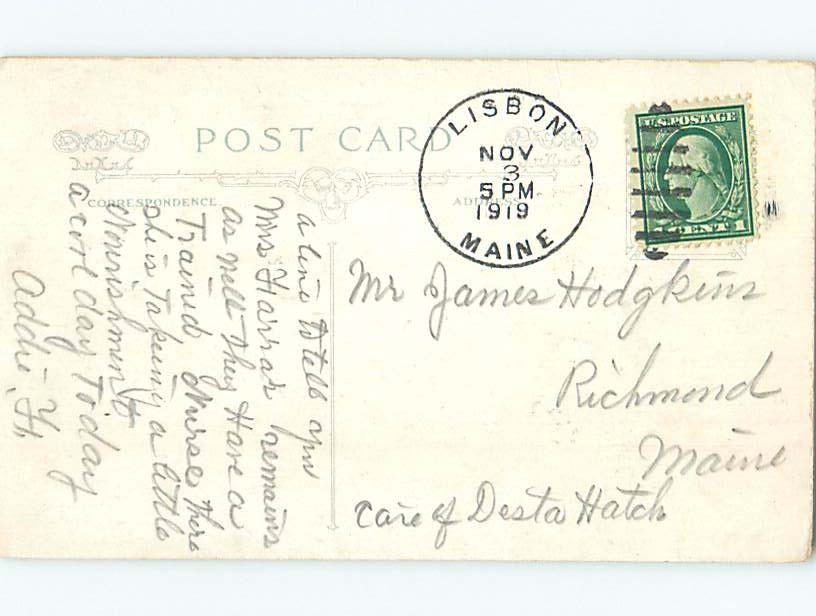 POST CARD
CORRESPONDENCE
ADDRESS
LISBON
NOV
3
5 PM
1919
MAINE
U.S. POSTAGE
CENT 1
a line to tell you
Mrs Farrar remains
as well they Have a
Traind Nurse there
she is Takeing a little
Nourishment
a day Today
Addie H
Mr James Hodgkins
Richmond
Maine
Care of Desta Hatch